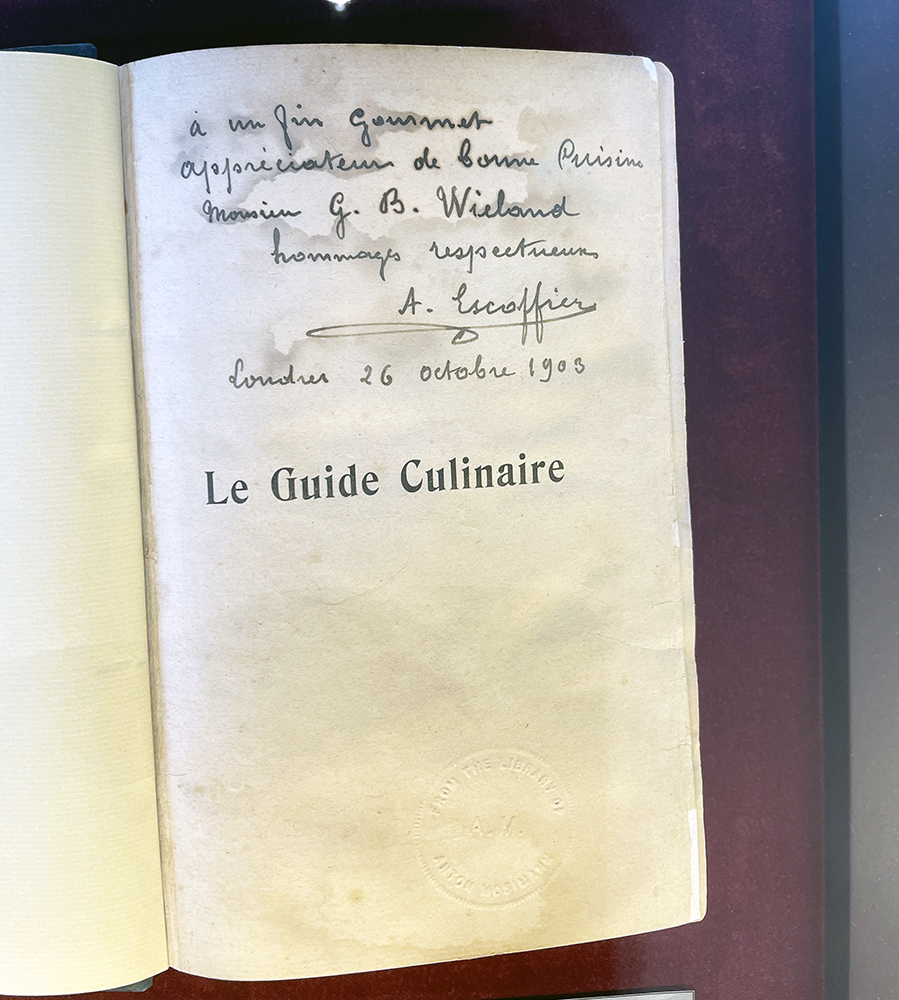 à un fin Gourmet
appréciateur de bonne Cuisine
Monsieur G. B. Wieland
hommages respectueux
A. Escoffier
Londres 26 octobre 1903
Le Guide Culinaire
FROM THE LIBRARY OF
A. M.
ANTON MOSIMANN